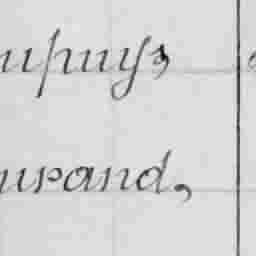 upuys
urand,